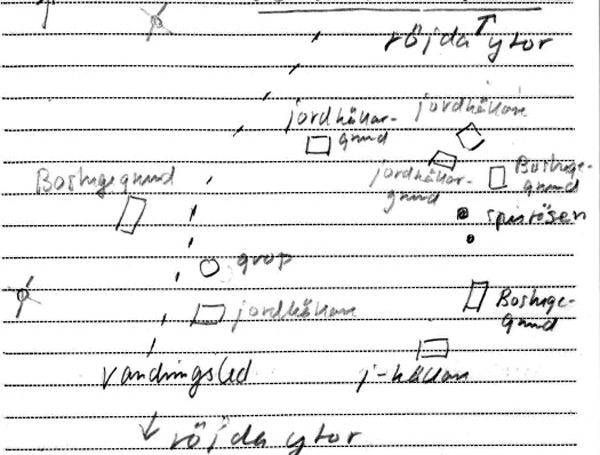 röjda ytor
jordkällar-
grund
jordkällare
jordkällar-
grund
Bostuge-
grund
Bostugegrund
spisrösen
grop
jordkällare
Bostuge-
grund
vandringsled
j-källare
röjda ytor